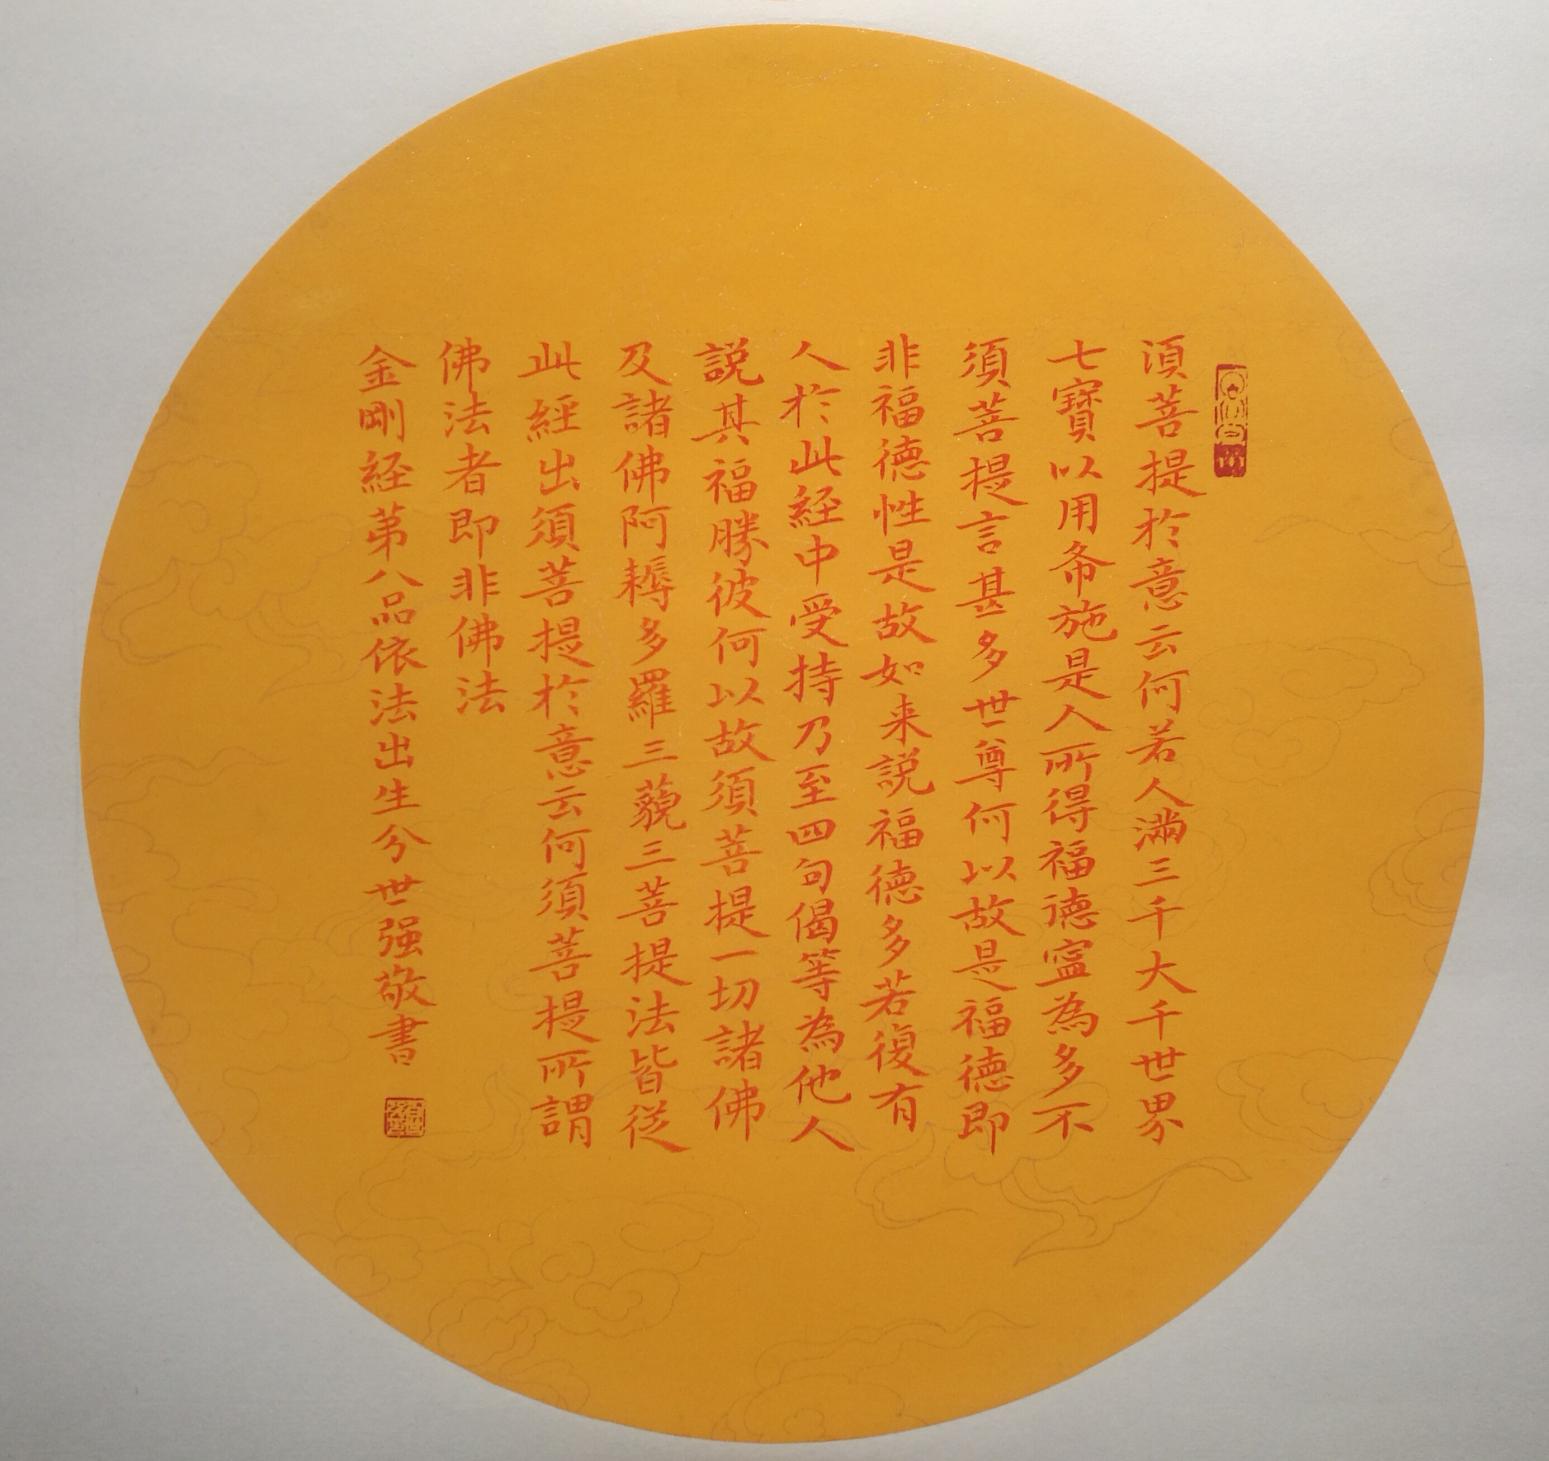 須菩提於意云何若人滿三千大千世界
七寶以用布施是人所得福德寧為多不
須菩提言甚多世尊何以故是福德即
非福德性是故如来説福德多若復有
人於此経中受持乃至四句偈等為他人
説其福勝彼何以故須菩提一切諸佛
及諸佛阿耨多羅三藐三菩提法皆從
此經出須菩提於意云何須菩提所謂
佛法者即非佛法
金剛経第八品依法出生分世强敬書